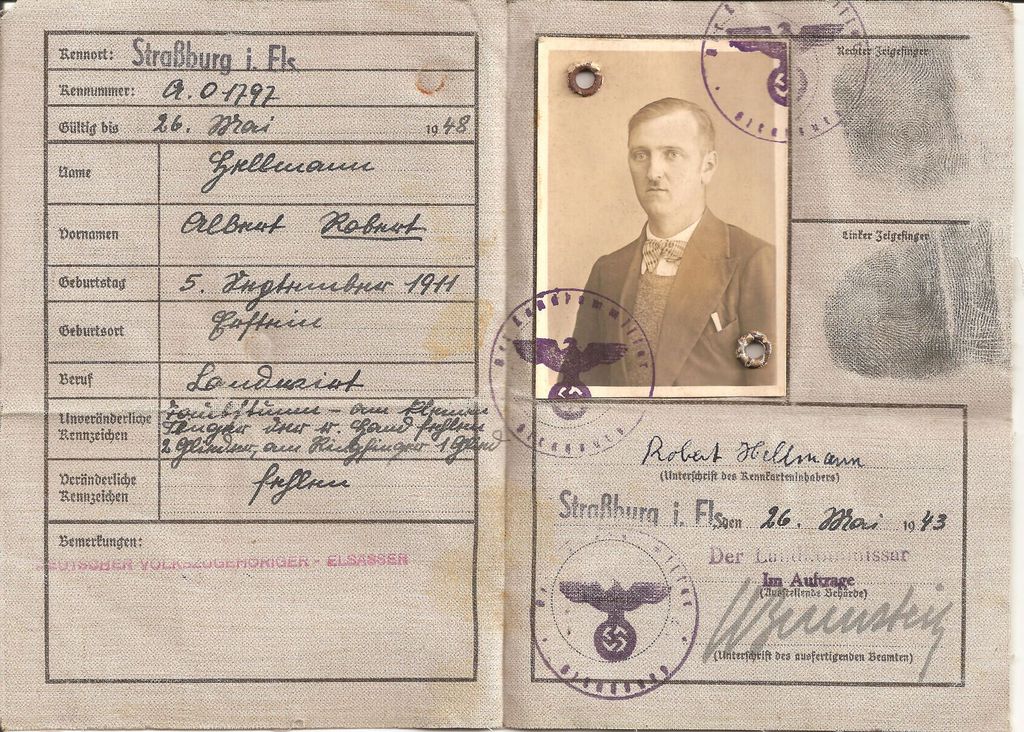 Kennort: Straßburg i. Els.
Kennummer: A.01797
Gültig bis 26. Mai 1948
Name Hellmann
Vornamen Albert Robert
Geburtstag 5. September 1911
Geburtsort Erstein
Beruf Landwirt
Unveränderliche Kennzeichen
taubstumm - am kleinen
Finger der r. Hand fehlen
2 Glieder, am Ringfinger 1 Glied
Veränderliche Kennzeichen fehlen
Bemerkungen:
DEUTSCHER VOLKSZUGEHÖRIGER - ELSÄSSER
Rechter Zeigefinger
Linker Zeigefinger
Der Landkommissar
Robert Hellmann
(Unterschrift des Kennkarteninhabers)
Straßburg i. Els., den 26. Mai 1943
Der Landkommissar
Im Auftrage
(Ausstellende Behörde)
(Unterschrift des ausfertigenden Beamten)